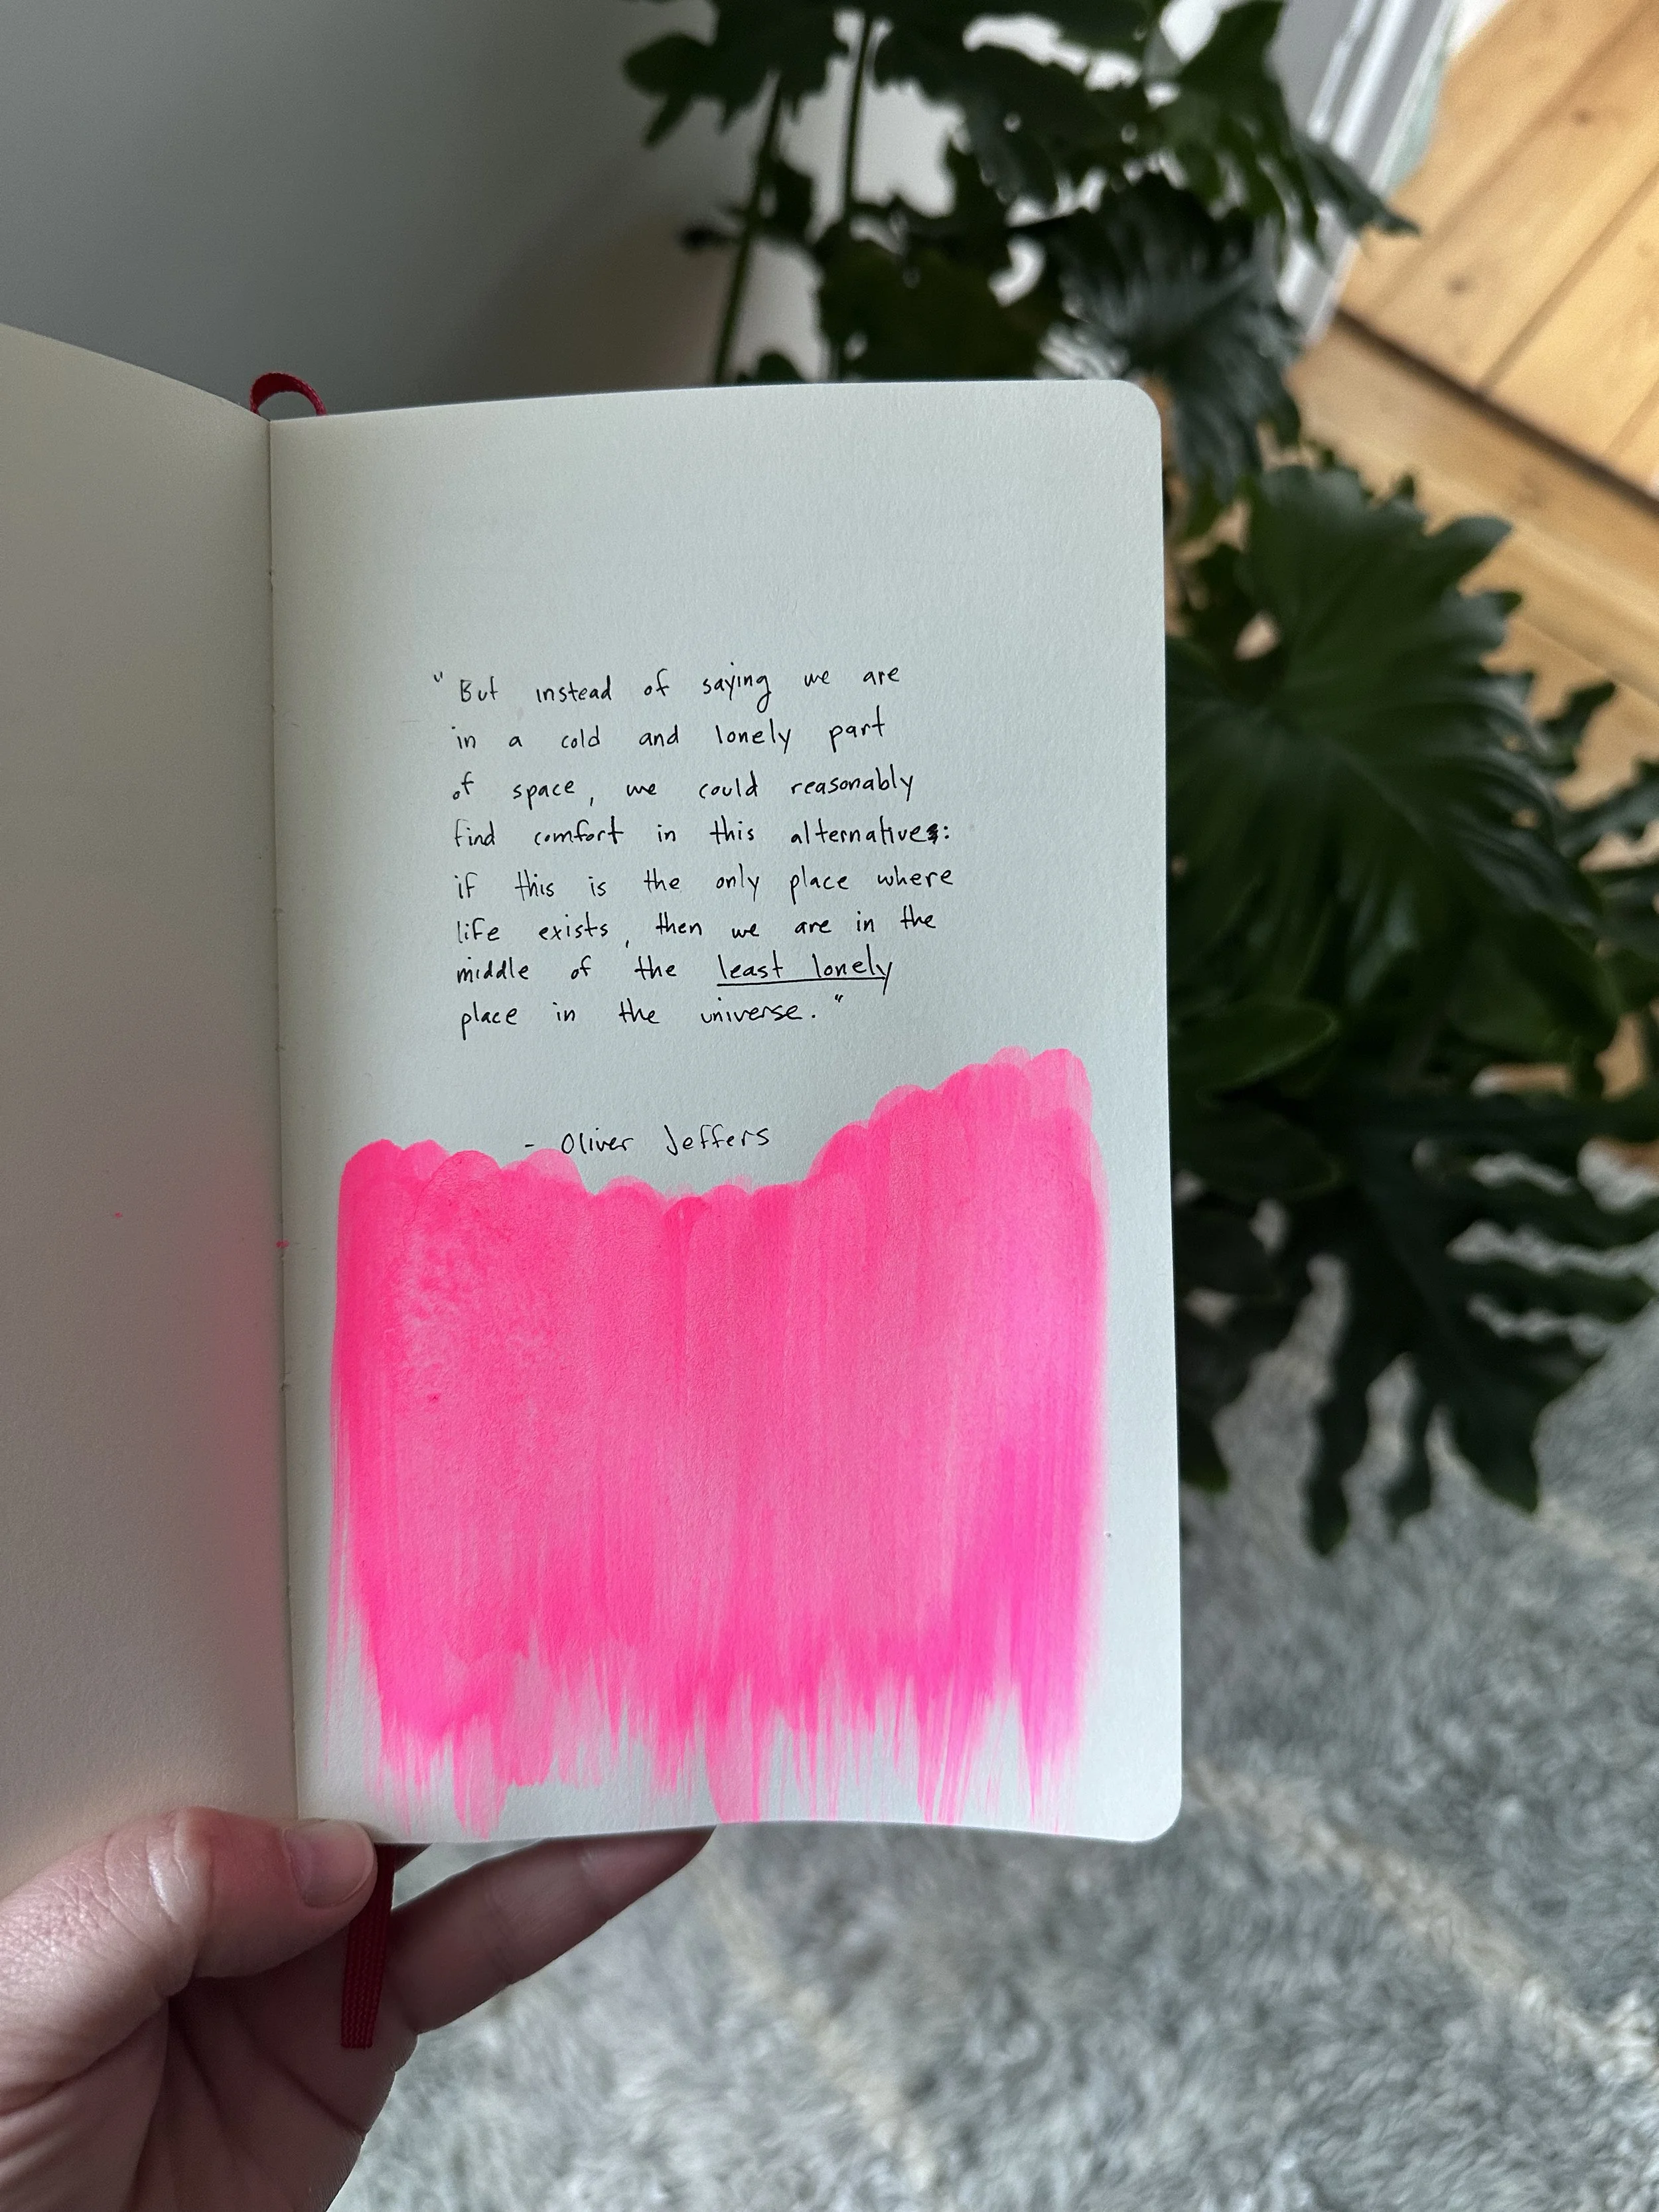 "But instead of saying we are
in a cold and lonely part
of space, we could reasonably
find comfort in this alternative:
if this is the only place where
life exists, then we are in the
middle of the least lonely
place in the universe."
- Oliver Jeffers